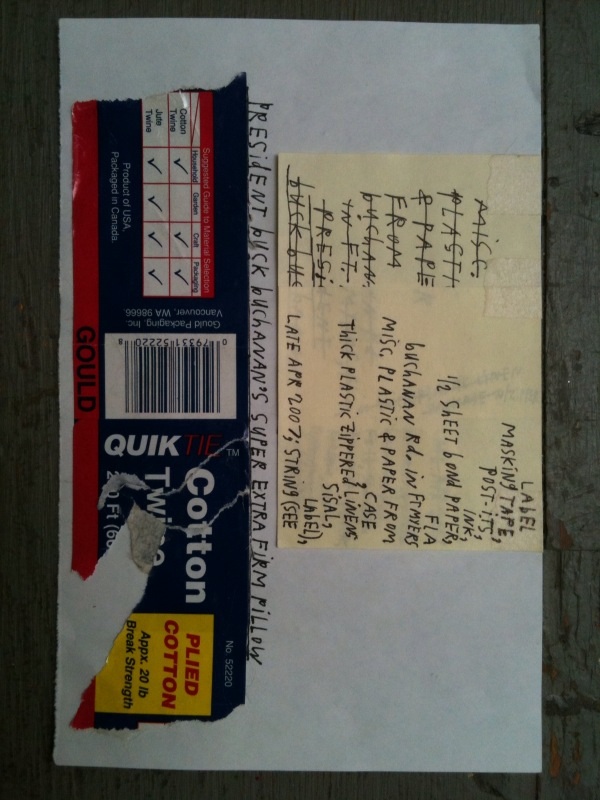 LABEL
MASKING TAPE,
POST-ITS,
INK,
1/2 SHEET BOND PAPER,
FLA
BUCHANAN RD. IN FT MYERS
MISC. PLASTIC & PAPER FROM
CASE,
THICK PLASTIC ZIPPERED LINENS
SISAL,
LABEL),
LATE APR 2007; STRING (SEE
MISC.
PLASTI
& PAPE
FROM
BUCHAN.
IN FT.
PRESI
BUCK BUC
PRESIDENT BUCK BUCHANAN'S SUPER EXTRA FIRM PILLOW
Suggested Guide to Material Selection
Household Garden Craft Packaging
Cotton Twine
Jute Twine
Product of USA.
Packaged in Canada.
Gould Packaging, Inc.
Vancouver, WA 98666.
0 79331 52220 8
GOULD
QUIKTIE™
Cotton
Twine
No. 52220
PLIED
COTTON
Appx. 20 lb
Break Strength